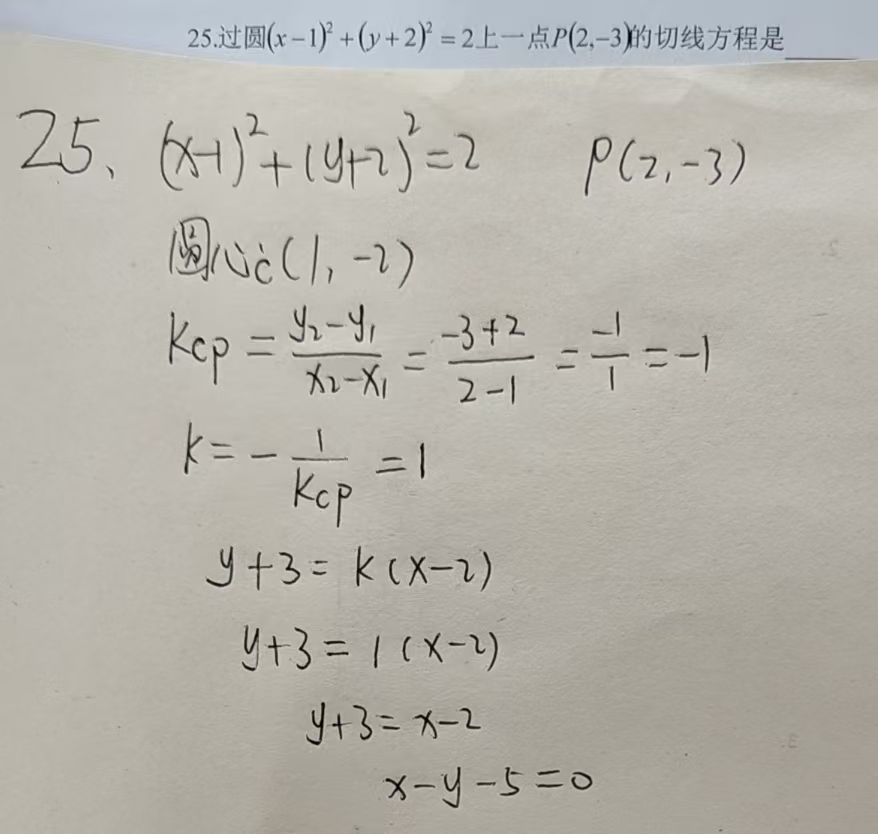 25.过圆(x-1)²+(y+2)²=2上一点P(2,-3)的切线方程是
25、(x-1)²+(y+2)²=2 P(2,-3)
圆心c(1,-2)
Kcp = (y₂-y₁)/(x₂-x₁) = (-3+2)/(2-1) = -1/1 = -1
k = -1/Kcp = 1
y+3=k(x-2)
y+3=1(x-2)
y+3=x-2
x-y-5=0